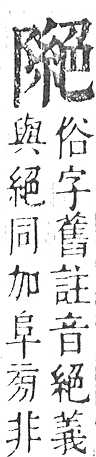 俗字舊註音絕義
與絕同加阜旁非